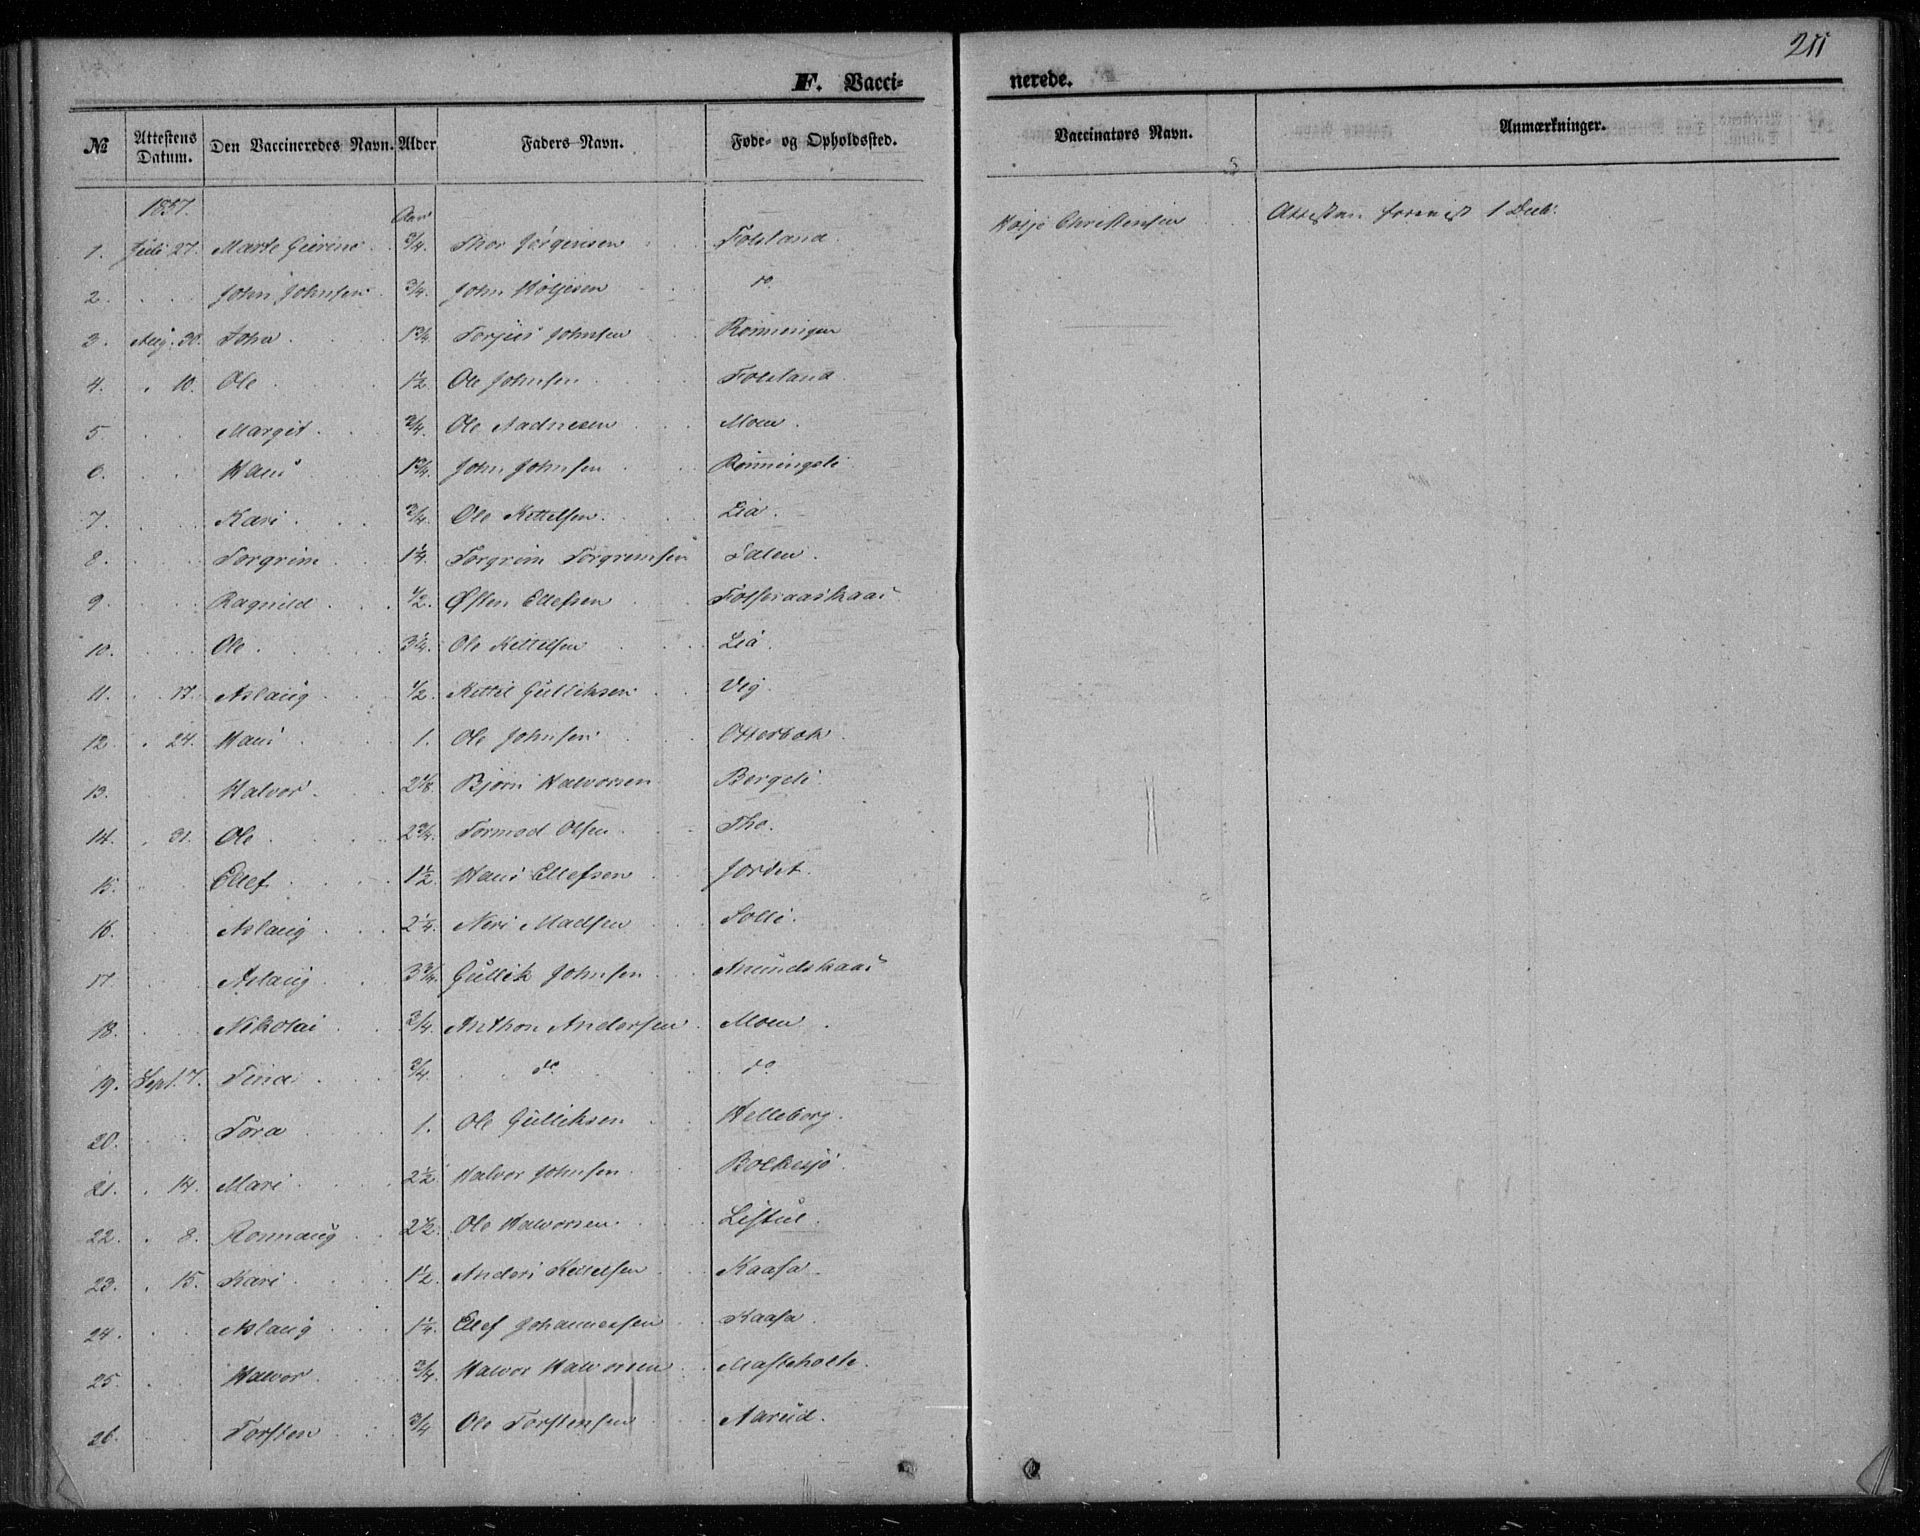 211
F. Vacci-
nerede.
№ Attestens Datum. Den Vaccineredes Navn. Alder Faders Navn. Føde- og Opholdssted. Vaccinators Navn. Anmærkninger.
1857. Aar
1. Juli 27. Marte Gurine 3/4. Thor Jørgensen Folsland. Christensen 1 Decb.
2. John Johnsen 3/4. John Høljesen do
3. Aug. 30. John 1 3/4. Torjus Johnsen Rønningen
4. " 10. Ole 1 1/2. Ole Johnsen Folsland.
5 Margit. 3/4. Ole Aadnesen Moen.
6. Hans 1 3/4. John Johnsen Rønningsli
7. Kari 3/4. Ole Kettelsen. Lia.
8. Torgrim 1 1/4. Torgrim Torgrimsen
9. Ragnild 1/2. Østen Ellefsen
10. Ole. 3 1/4. Ole Kettelsen Lia.
11. " 17. Aslaug 1/2. Kettil Gulliksen Vig.
12. " 24. Hans 1. Ole Johnsen Otterbæk.
13. Halvor. 2 1/8. Bjørn Halvorsen Bergeli
14. " 31. Ole 2 3/4. Tormod Olsen Tho.
15. Ellef 1 1/2. Hans Ellefsen Jordet.
16. Aslaug 2 1/4. Neri Madsen Solli.
17. Aslaug 3 3/4. Gullik Johnsen Amundskaas
18. Nikolai 3/4. Anthon Andersen Moen.
19. Sept. 7. Tina 3/4. do do
20. Tora 1. Ole Gulliksen Helleborg.
21. " 14. Mari 2 1/2. Halvor Johnsen Bolkesjø.
22. " 8. Ronnaug 2 1/2. Ole Halvorsen. Listul.
23. " 15. Kari 1 1/2. Anders Kettelsen Kaasa.
24. Aslaug 1 1/4. Ellef Johannessen Kaasa.
25. Halvor 3/4. Halvor Halvorsen Masteholte.
26. Torsten 3/4 Ole Torstensen Aarud.